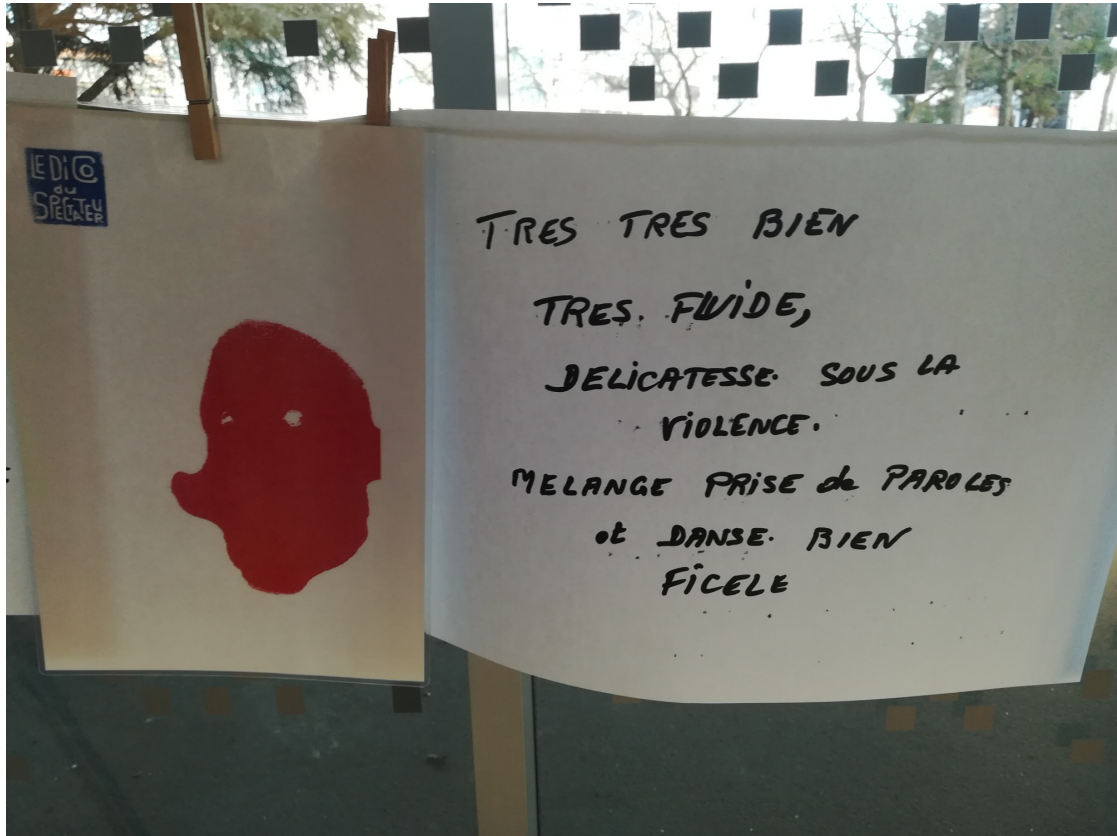 LE DiCO
du
SPECTATEUR
TRES TRES BIEN
TRES. FLUIDE,
DELiCATESSE. SOUS LA
ViOLENCE.
MELANGE PRISE de PAROLES
et DANSE. BIEN
FiCELE